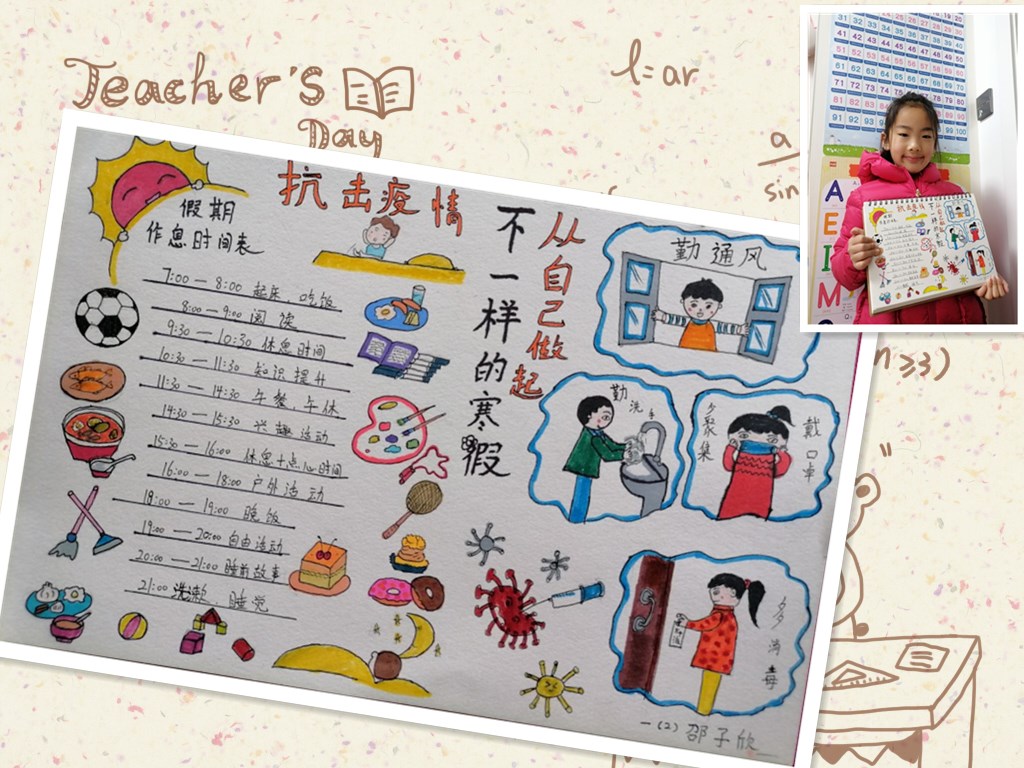 Teacher's
Day
l=ar
抗击疫情
不一样的寒假
从自己做起
假期
作息时间表
7:00—8:00 起床、吃饭
8:00—9:00 阅读
9:30—10:30 休息时间
10:30—11:30 知识提升
11:30—14:30 午餐、午休
14:30—15:30 兴趣活动
15:30—16:00 休息+点心时间
16:00—18:00 户外活动
18:00—19:00 晚饭
19:00—20:00 自由活动
20:00—21:00 睡前故事
21:00 洗漱、睡觉
勤通风
勤洗手
少聚集
戴口罩
多消毒
一(2) 邵子欣
a
sin
n≥3)